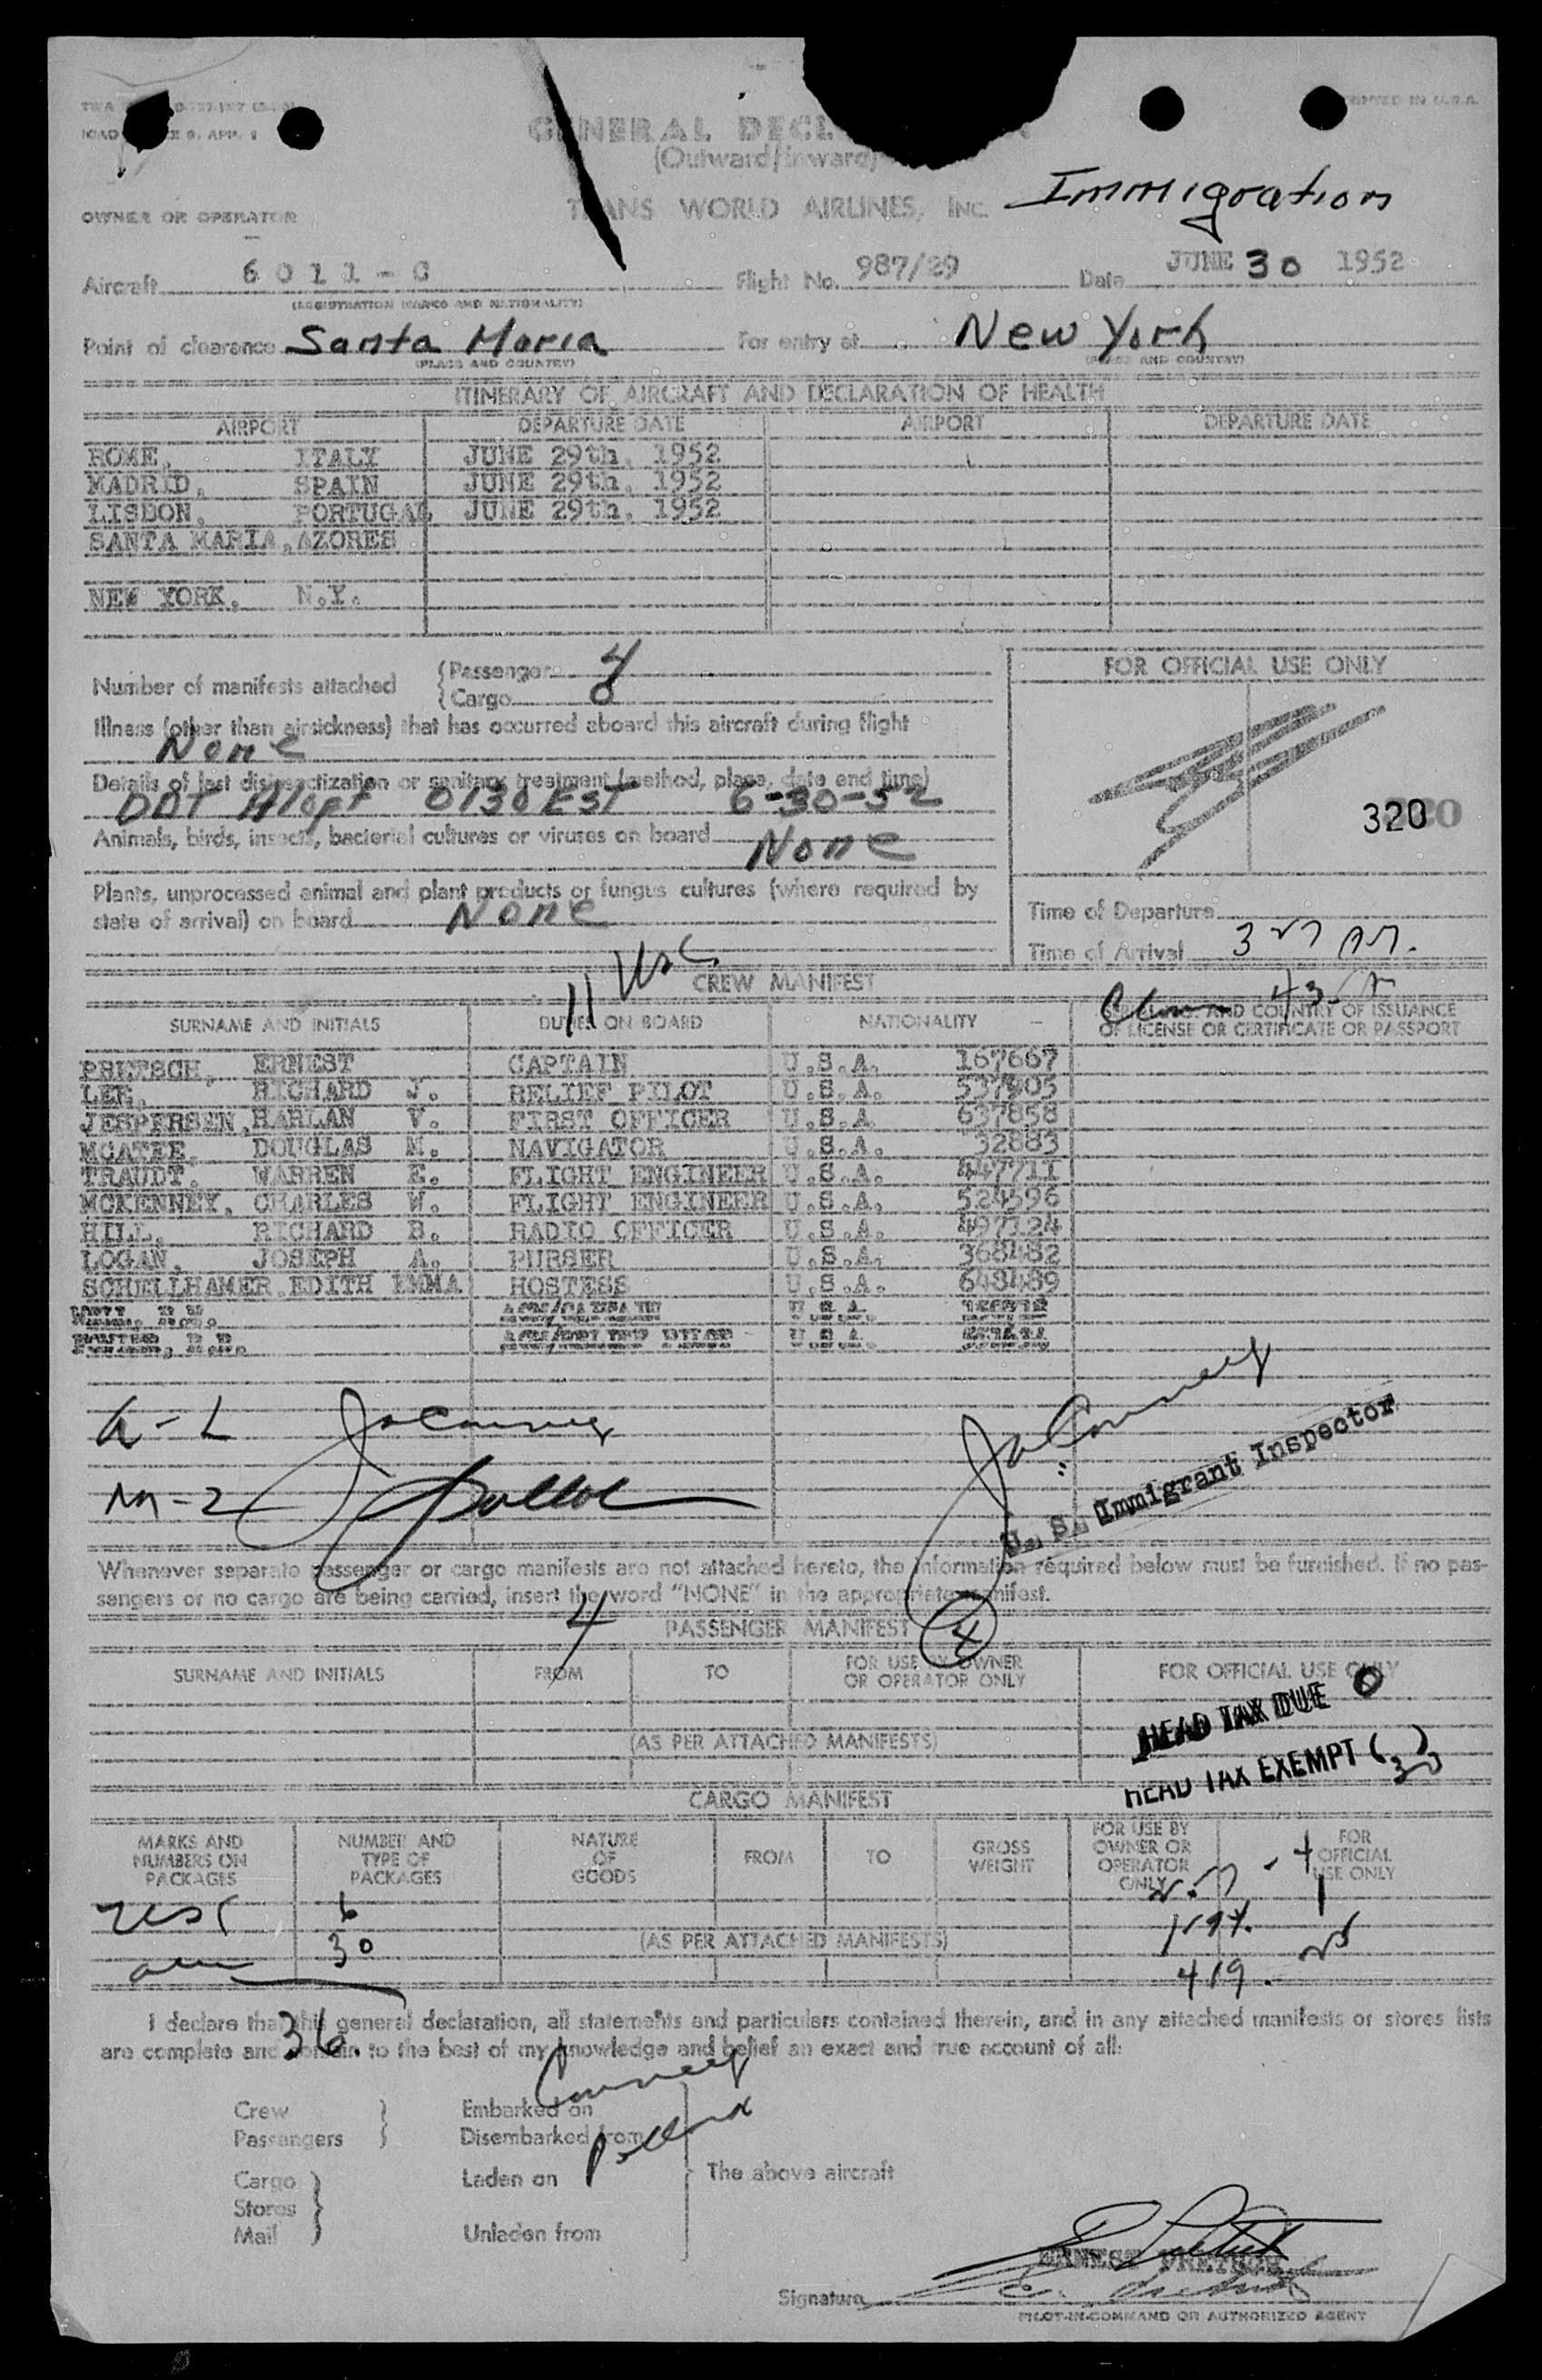 PRINTED IN U.S.A.
GENERAL DECL
(Outward/Inward)
TRANS WORLD AIRLINES, INC.
Immigration
OWNER OR OPERATOR
Aircraft 6011-C Flight No. 987/29 Date JUNE 30 1952
(REGISTRATION MARKS AND NATIONALITY)
Point of clearance Santa Maria For entry at New York
(PLACE AND COUNTRY) (PLACE AND COUNTRY)
ITINERARY OF AIRCRAFT AND DECLARATION OF HEALTH
AIRPORT DEPARTURE DATE AIRPORT DEPARTURE DATE
ROME, ITALY JUNE 29th, 1952
MADRID, SPAIN JUNE 29th, 1952
LISBON, PORTUGAL JUNE 29th, 1952
SANTA MARIA, AZORES
NEW YORK, N.Y.
Number of manifests attached
Passenger 4
Cargo
FOR OFFICIAL USE ONLY
Illness (other than airsickness) that has occurred aboard this aircraft during flight
None
Details of last disinsectization or sanitary treatment (method, place, date and time)
DDT 0130 EST 6-30-52
320
Animals, birds, insects, bacterial cultures or viruses on board None
Plants, unprocessed animal and plant products or fungus cultures (where required by
state of arrival) on board None
Time of Departure
Time of Arrival
CREW MANIFEST
SURNAME AND INITIALS DUTIES ON BOARD NATIONALITY SERIAL NO. AND COUNTRY OF ISSUANCE
OF LICENSE OR CERTIFICATE OR PASSPORT
PRETSCH, ERNEST CAPTAIN U.S.A. 167667
LEE, RICHARD J. RELIEF PILOT U.S.A. 537905
JESPERSEN, HARLAN V. FIRST OFFICER U.S.A 637858
MCATEE, DOUGLAS M. NAVIGATOR U.S.A. 32883
TRAUDT, WARREN E. FLIGHT ENGINEER U.S.A. 447711
MCKENNEY, CHARLES W. FLIGHT ENGINEER U.S.A. 524596
HILL, RICHARD B. RADIO OFFICER U.S.A. 497124
LOGAN, JOSEPH A. PURSER U.S.A. 368482
SCHELLHAMER, EDITH EMMA HOSTESS U.S.A. 648489
U. S. Immigrant Inspector
Whenever separate passenger or cargo manifests are not attached hereto, the information required below must be furnished. If no pas-
sengers or no cargo are being carried, insert the word "NONE" in the appropriate manifest.
4 PASSENGER MANIFEST 4
SURNAME AND INITIALS FROM TO FOR USE BY OWNER
OR OPERATOR ONLY FOR OFFICIAL USE ONLY
HEAD TAX DUE 0
(AS PER ATTACHED MANIFESTS)
HEAD TAX EXEMPT (30)
CARGO MANIFEST
MARKS AND
NUMBERS ON
PACKAGES
NUMBER AND
TYPE OF
PACKAGES
NATURE
OF
GOODS
FROM
TO
GROSS
WEIGHT
FOR USE BY
OWNER OR
OPERATOR
ONLY
FOR
OFFICIAL
USE ONLY
6
30
(AS PER ATTACHED MANIFESTS)
419.
36
I declare that this general declaration, all statements and particulars contained therein, and in any attached manifests or stores lists
are complete and contain to the best of my knowledge and belief an exact and true account of all:
Crew Embarked on
Passengers Disembarked from
Cargo Laden on The above aircraft
Stores
Mail Unladen from
ERNEST PRETSCH
Signature
PILOT-IN-COMMAND OR AUTHORIZED AGENT